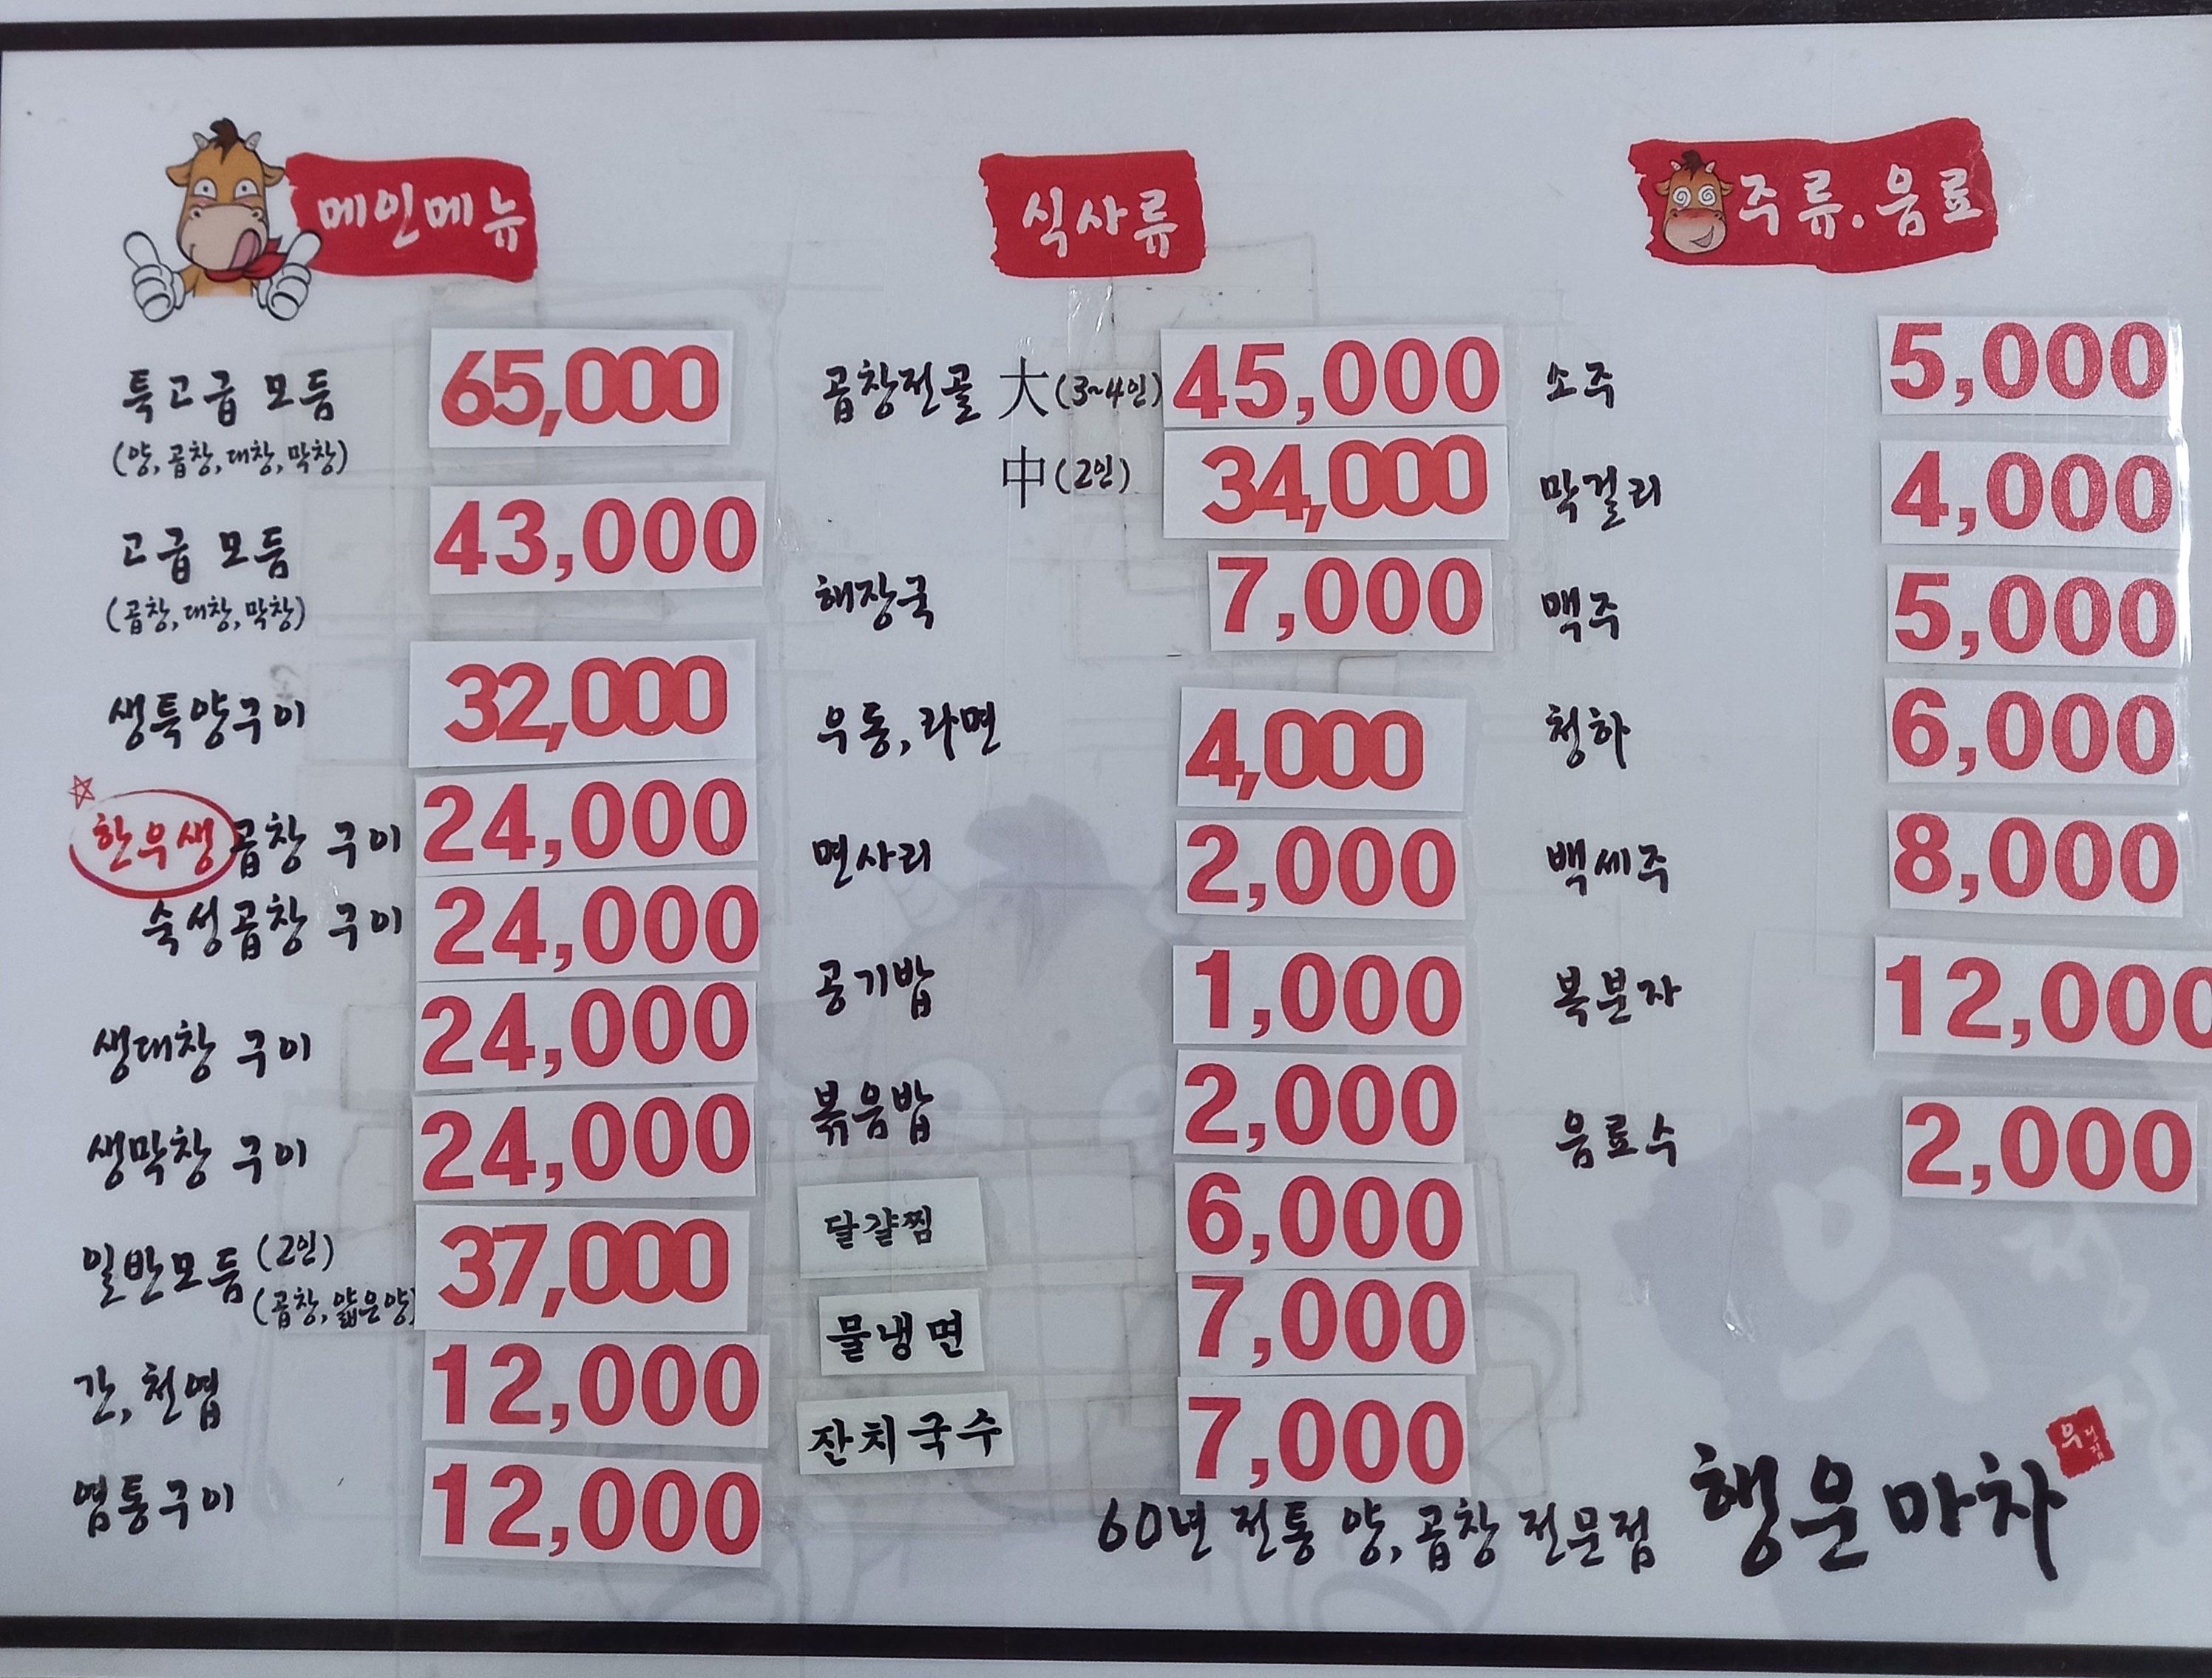 메인메뉴
특고급 모듬 65,000
(양,곱창,대창,막창)
고급 모듬 43,000
(곱창,대창,막창)
생특양구이 32,000
한우생곱창 구이 24,000
숙성곱창 구이 24,000
생대창 구이 24,000
생막창 구이 24,000
일반모듬 (2인) 37,000
(곱창,얇은양)
간,천엽 12,000
염통구이 12,000
식사류
곱창전골 大(3~4인) 45,000
中(2인) 34,000
해장국 7,000
우동,라면 4,000
면사리 2,000
공기밥 1,000
볶음밥 2,000
달걀찜 6,000
물냉면 7,000
잔치국수 7,000
주류.음료
소주 5,000
막걸리 4,000
맥주 5,000
청하 6,000
백세주 8,000
복분자 12,000
음료수 2,000
60년 전통 양,곱창 전문점 행운마차